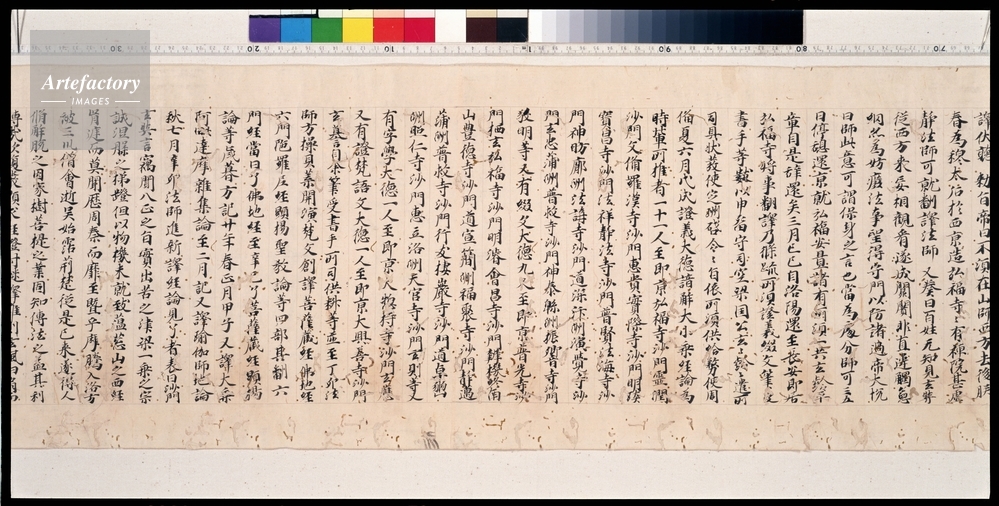 春為穆太后於西京造弘福寺寺有禪院甚虛
靜法師可就翻譯法師又奏曰百姓无知見玄奘
從西方來妄相觀看遂成闤闠非直違觸憲
網亦為妨廢法事望得守門以防諸過帝大悅
曰師此意可謂保身之言也當為處分師可三五
日停憩還京就弘福安置諸有所須一共玄齡平
章自是辭還矣三月己巳自洛陽還至長安即居
弘福寺將事翻譯乃條疏所須證義綴文筆受
書手等數以申留守司空梁國公玄齡遣所
司具狀發使定州啓令旨依所須供給務使周
備夏六月戊戌證義大德諳解大小乘經論為
時輩所推者一十二人至即京弘福寺沙門靈潤
沙門文備羅漢寺沙門惠貴實際寺沙門明琰
寶昌寺沙門法祥靜法寺沙門普賢法海寺沙
門神昉廓州法講寺沙門道深汴州演覺寺沙
門玄忠蒲州普救寺沙門神泰綿州振嚮寺沙門
敬明等又有綴文大德九人至即京普光寺沙
門栖玄弘福寺沙門明濬會昌寺沙門辯機終南
山豐德寺沙門道宣簡州福聚寺沙門靜邁
蒲州普救寺沙門行友棲巖寺沙門道卓豳
州昭仁寺沙門惠立洛州天宮寺沙門玄則等又
有字學大德一人至即京大惣持寺沙門玄應
又有證梵語文大德一人至即京大興善寺沙門
玄謩自餘筆受書手所司供料等並至丁卯法
師方操貝葉開演梵文創譯菩薩藏經佛地經
六門陀羅尼經顯揚聖教論等四部其翻六
門經當日了佛地經至辛巳了菩薩藏經顯揚
論等歲暮方訖廿年春正月甲子又譯大乘
阿毗達摩雜集論至二月訖又譯瑜伽師地論
秋七月辛卯法師進新譯經論見了者表曰沙門
玄奘言竊聞八正之旨實出苦之津梁一乘之宗
誠涅槃之梯蹬但以物機未熟致蘊葱山之西經
胥庭而莫聞歷周秦而靡至暨乎摩騰入洛方
被三川僧會遊吳始霑荊楚從是已來遂得人
脩解脫之因家樹菩提之業固知傳法之益其利
Artefactory
IMAGES
30
20
10
90
80
70